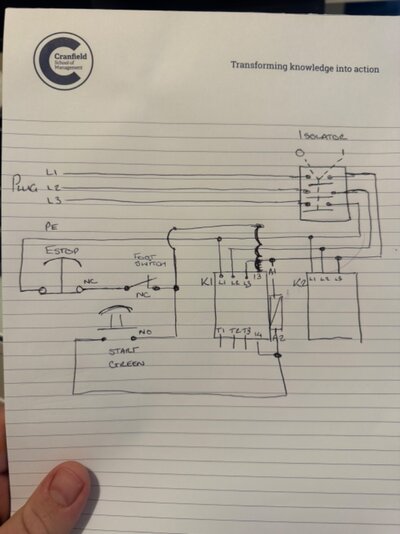 Cranfield
School of
Management
Transforming knowledge into action
ISOLATOR
O I
PLUG
L1
L2
L3
PE
ESTOP
NC
FOOT
SWITCH
NC
K1
L1 L2 L3 13 A1
K2
L1 L2 L3
T1 T2 T3 14 A2
NO
START
GREEN